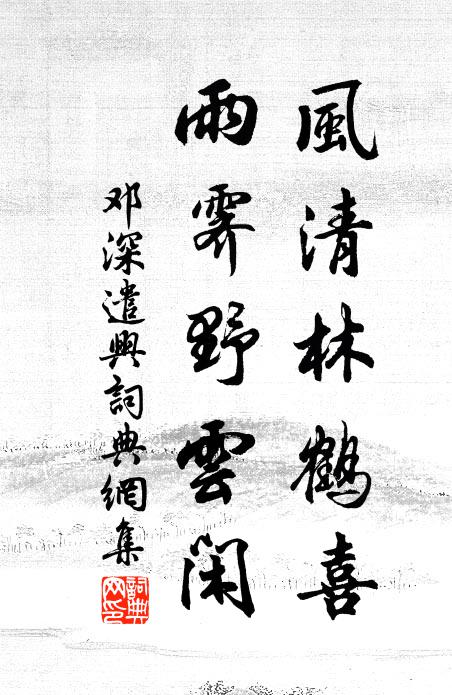 風清林鶴喜
雨霽野雲閑
邓深遣興詞典網集
詞典网印